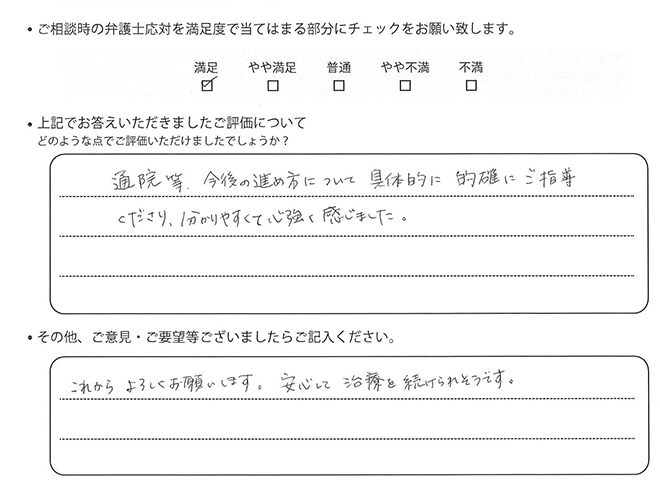 ・ご相談時の弁護士応対を満足度で当てはまる部分にチェックをお願い致します。
満足 やや満足 普通 やや不満 不満
☑ □ □ □ □
・上記でお答えいただきましたご評価について
どのような点でご評価いただけましたでしょうか？
通院等、今後の進め方について具体的に的確にご指導
くださり、分かりやすくて心強く感じました。
・その他、ご意見・ご要望等ございましたらご記入ください。
これからよろしくお願いします。安心して治療を続けられそうです。